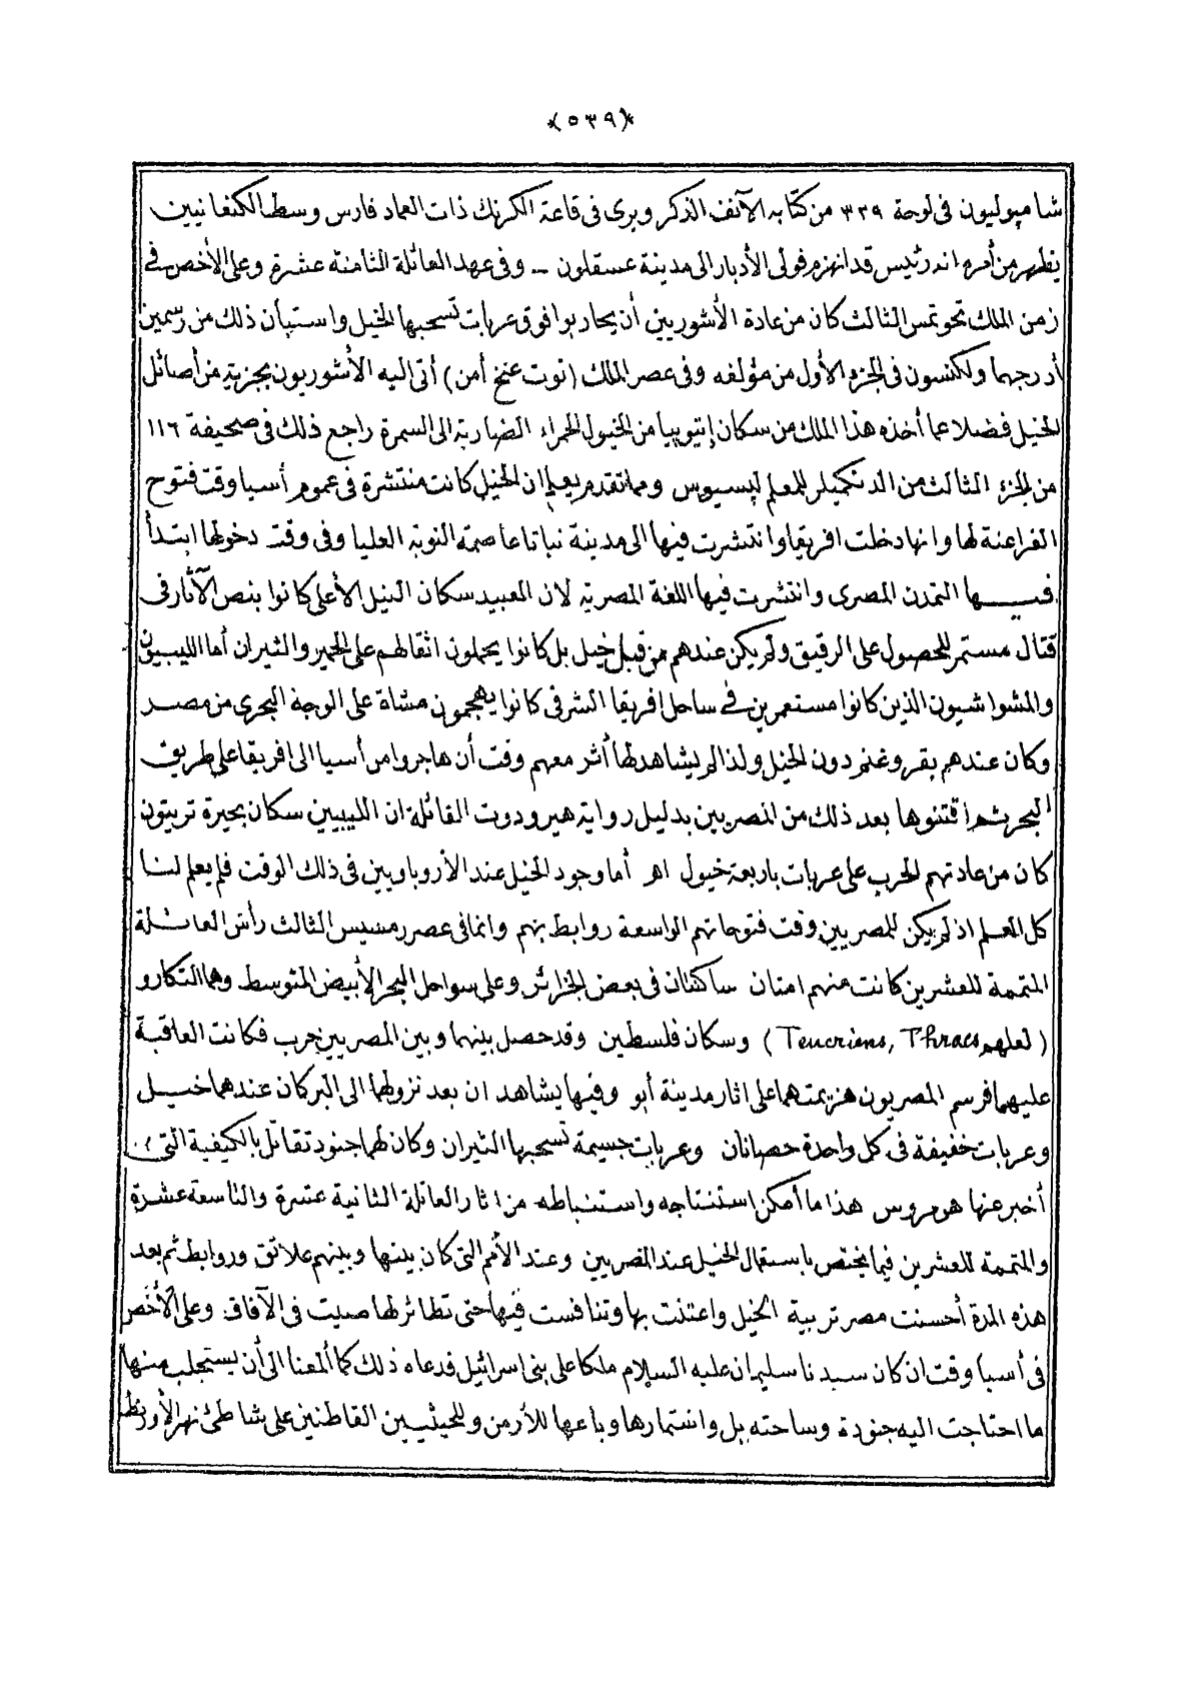 *(٥٣٩)*
شامپوليون فى لوحة ٣٣٩ من كتابه الآنف الذكر ويرى فى قاعة الكرنك ذات العماد فارس وسط الكنعانيين
يظهر من أمره انه رئيس قد انهزم فولى الأدبار الى مدينة عسقلون – وفى عهد العائلة الثامنة عشرة وعلى الأخص فى
زمن الملك تحوتمس الثالث كان من عادة الأشوريين أن يحاربوا فوق عربات تسحبها الخيل واستبان ذلك من رسمين
أدرجهما ولكنسون فى الجزء الأول من مؤلفه وفى عصر الملك (توت عنخ أمن) أتى اليه الأشوريون بجزية من أصائل
الخيل فضلا عما أخذه هذا الملك من سكان إتيوبيا من الخيول الحمراء الضاربة الى السمرة راجع ذلك فى صحيفة ١١٦
من الجزء الثالث من الدنكميلر للمعلم لپسيوس ومما تقدم يعلم ان الخيل كانت منتشرة فى عموم أسيا وقت فتوح
الفراعنة لها وانها دخلت افريقا وانتشرت فيها الى مدينة نباتا عاصمة النوبة العليا وفى وقت دخولها ابتدأ
فيها التمدن المصرى وانتشرت فيها اللغة المصرية لان العبيد سكان النيل الأعلى كانوا بنص الآثار فى
قتال مستمر للحصول على الرقيق ولم يكن عندهم من قبل خيل بل كانوا يحملون اثقالهم على الحمير والثيران أما الليبيون
والمشواشيون الذين كانوا مستعمرين فى ساحل افريقا الشرقى كانوا يهجمون مشاة على الوجه البحرى من مصر
وكان عندهم بقر وغنم دون الخيل ولذا لم يشاهد لها أثر معهم وقت أن هاجروا من أسيا الى افريقا على طريق
البحر ثم اقتنوها بعد ذلك من المصريين بدليل رواية هيرودوت القائلة ان الليبيين سكان بحيرة تريتون
كان من عادتهم الحرب على عربات باربعة خيول اهـ أما وجود الخيل عند الأروباويين فى ذلك الوقت فلم يعلم لنا
كل العلم اذ لم يكن للمصريين وقت فتوحاتهم الواسعة روابط بهم وانما فى عصر رمسيس الثالث رأس العائلة
المتممة للعشرين كانت منهم امتان ساكنتان فى بعض الجزائر وعلى سواحل البحر الأبيض المتوسط وهما التكارو
(لعلهم Teucriens, Thraces) وسكان فلسطين وقد حصل بينهما وبين المصريين حرب فكانت العاقبة
عليهما فرسم المصريون هزيمتهما على اثار مدينة أبو وفيها يشاهد ان بعد نزولهما الى البر كان عندهما خيل
وعربات خفيفة فى كل واحدة حصانان وعربات جسيمة تسحبها الثيران وكان لهما جنود تقاتل بالكيفية التى
أخبر عنها هوميروس هذا ما أمكن استنتاجه واستنباطه من اثار العائلة الثانية عشرة والتاسعة عشرة
والمتممة للعشرين فيما يختص باستعمال الخيل عند المصريين وعند الأمم التى كان بينها وبينهم علائق وروابط ثم بعد
هذه المدة أحسنت مصر تربية الخيل واعتنت بها وتنافست فيها حتى تطائر لها صيت فى الآفاق وعلى الأخص
فى أسيا وقت ان كان سيدنا سليمان عليه السلام ملكا على بنى اسرائيل فدعاه ذلك كما ألمعنا الى أن يستجلب منها
ما احتاجت اليه جنوده وساحته بل واستمارها وباعها للأرمن وللحيثيين القاطنين على شاطئ نهر الأورنط